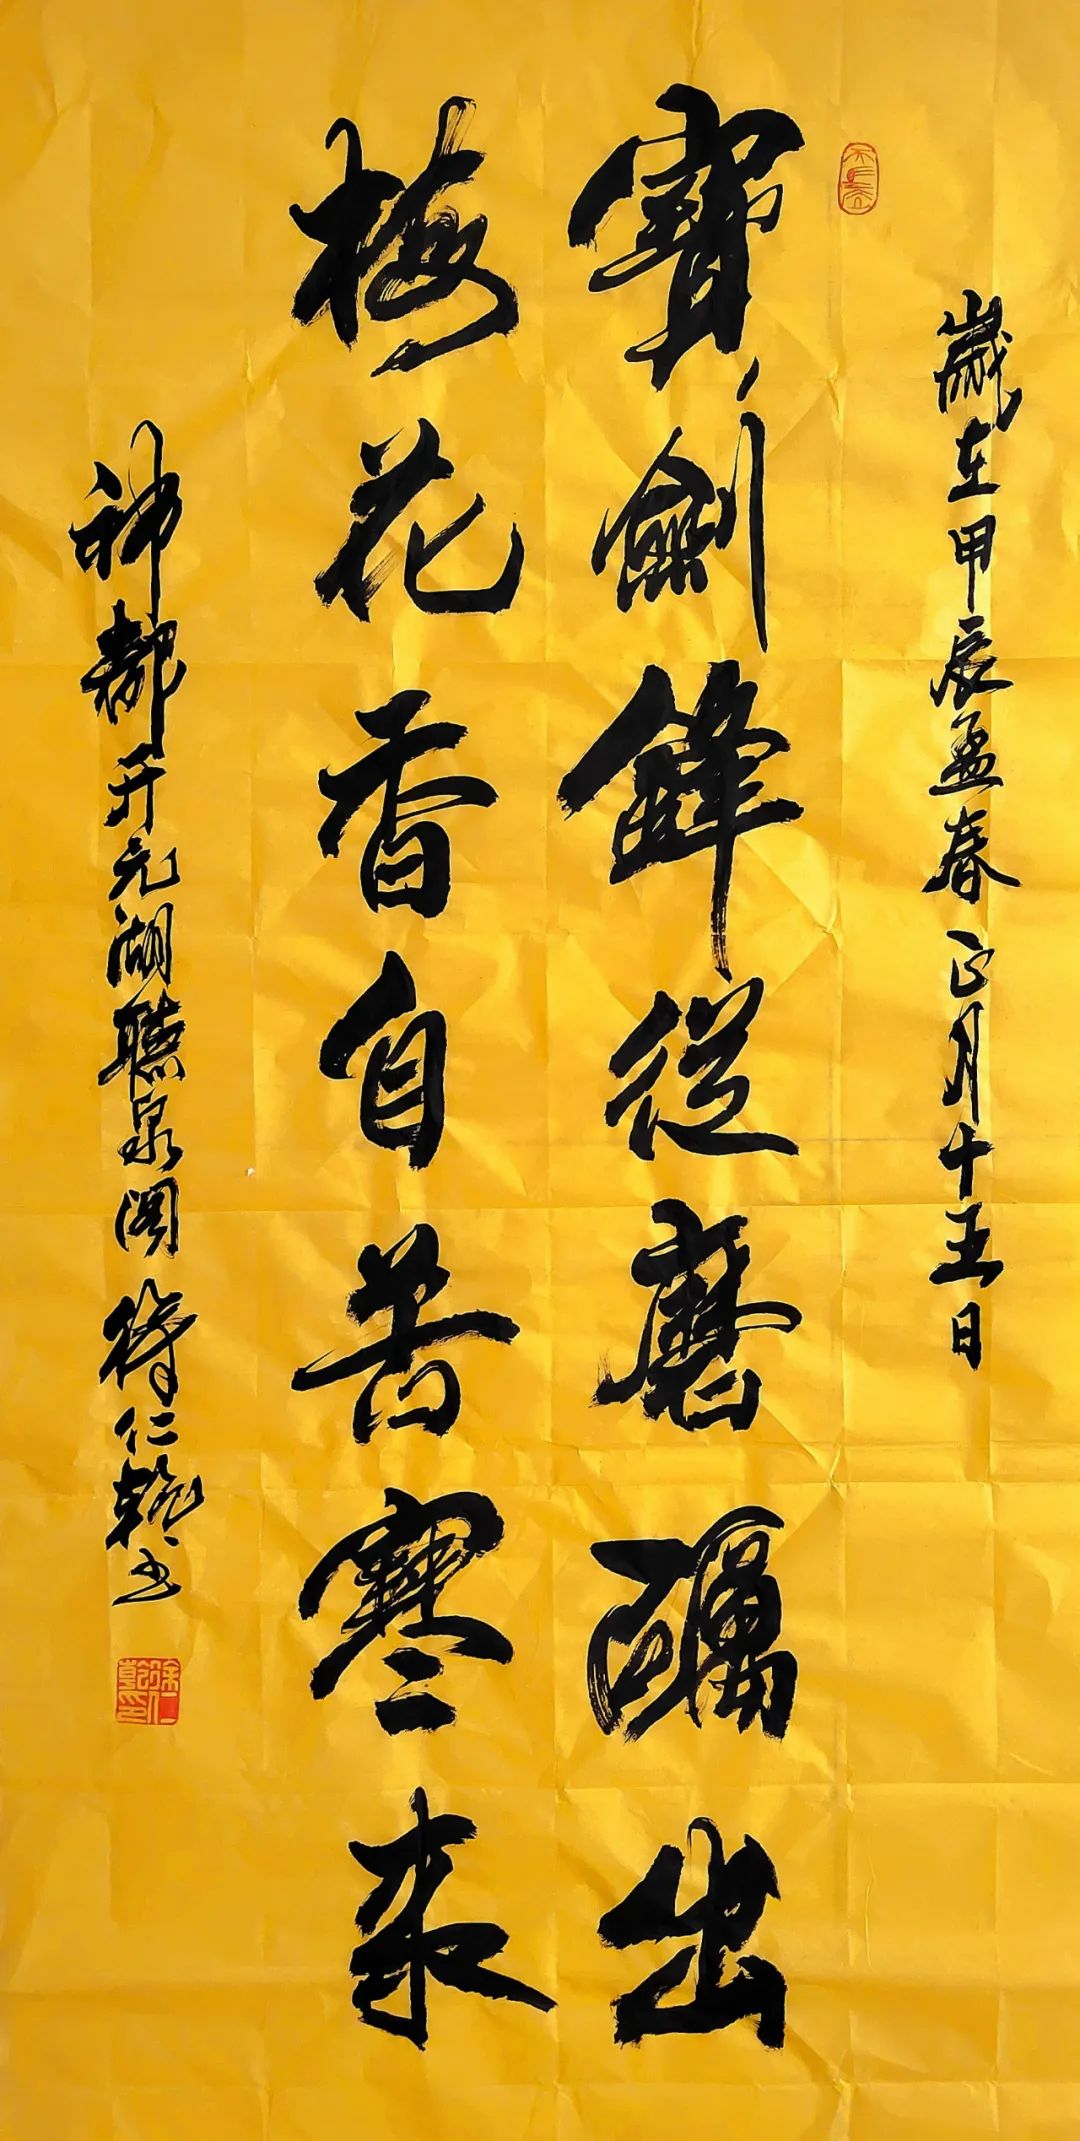 歲在甲辰孟春正月十五日
寶劍鋒從磨礪出
梅花香自苦寒来
神都开元湖聽泉阁徐仁乾书
徐仁乾印